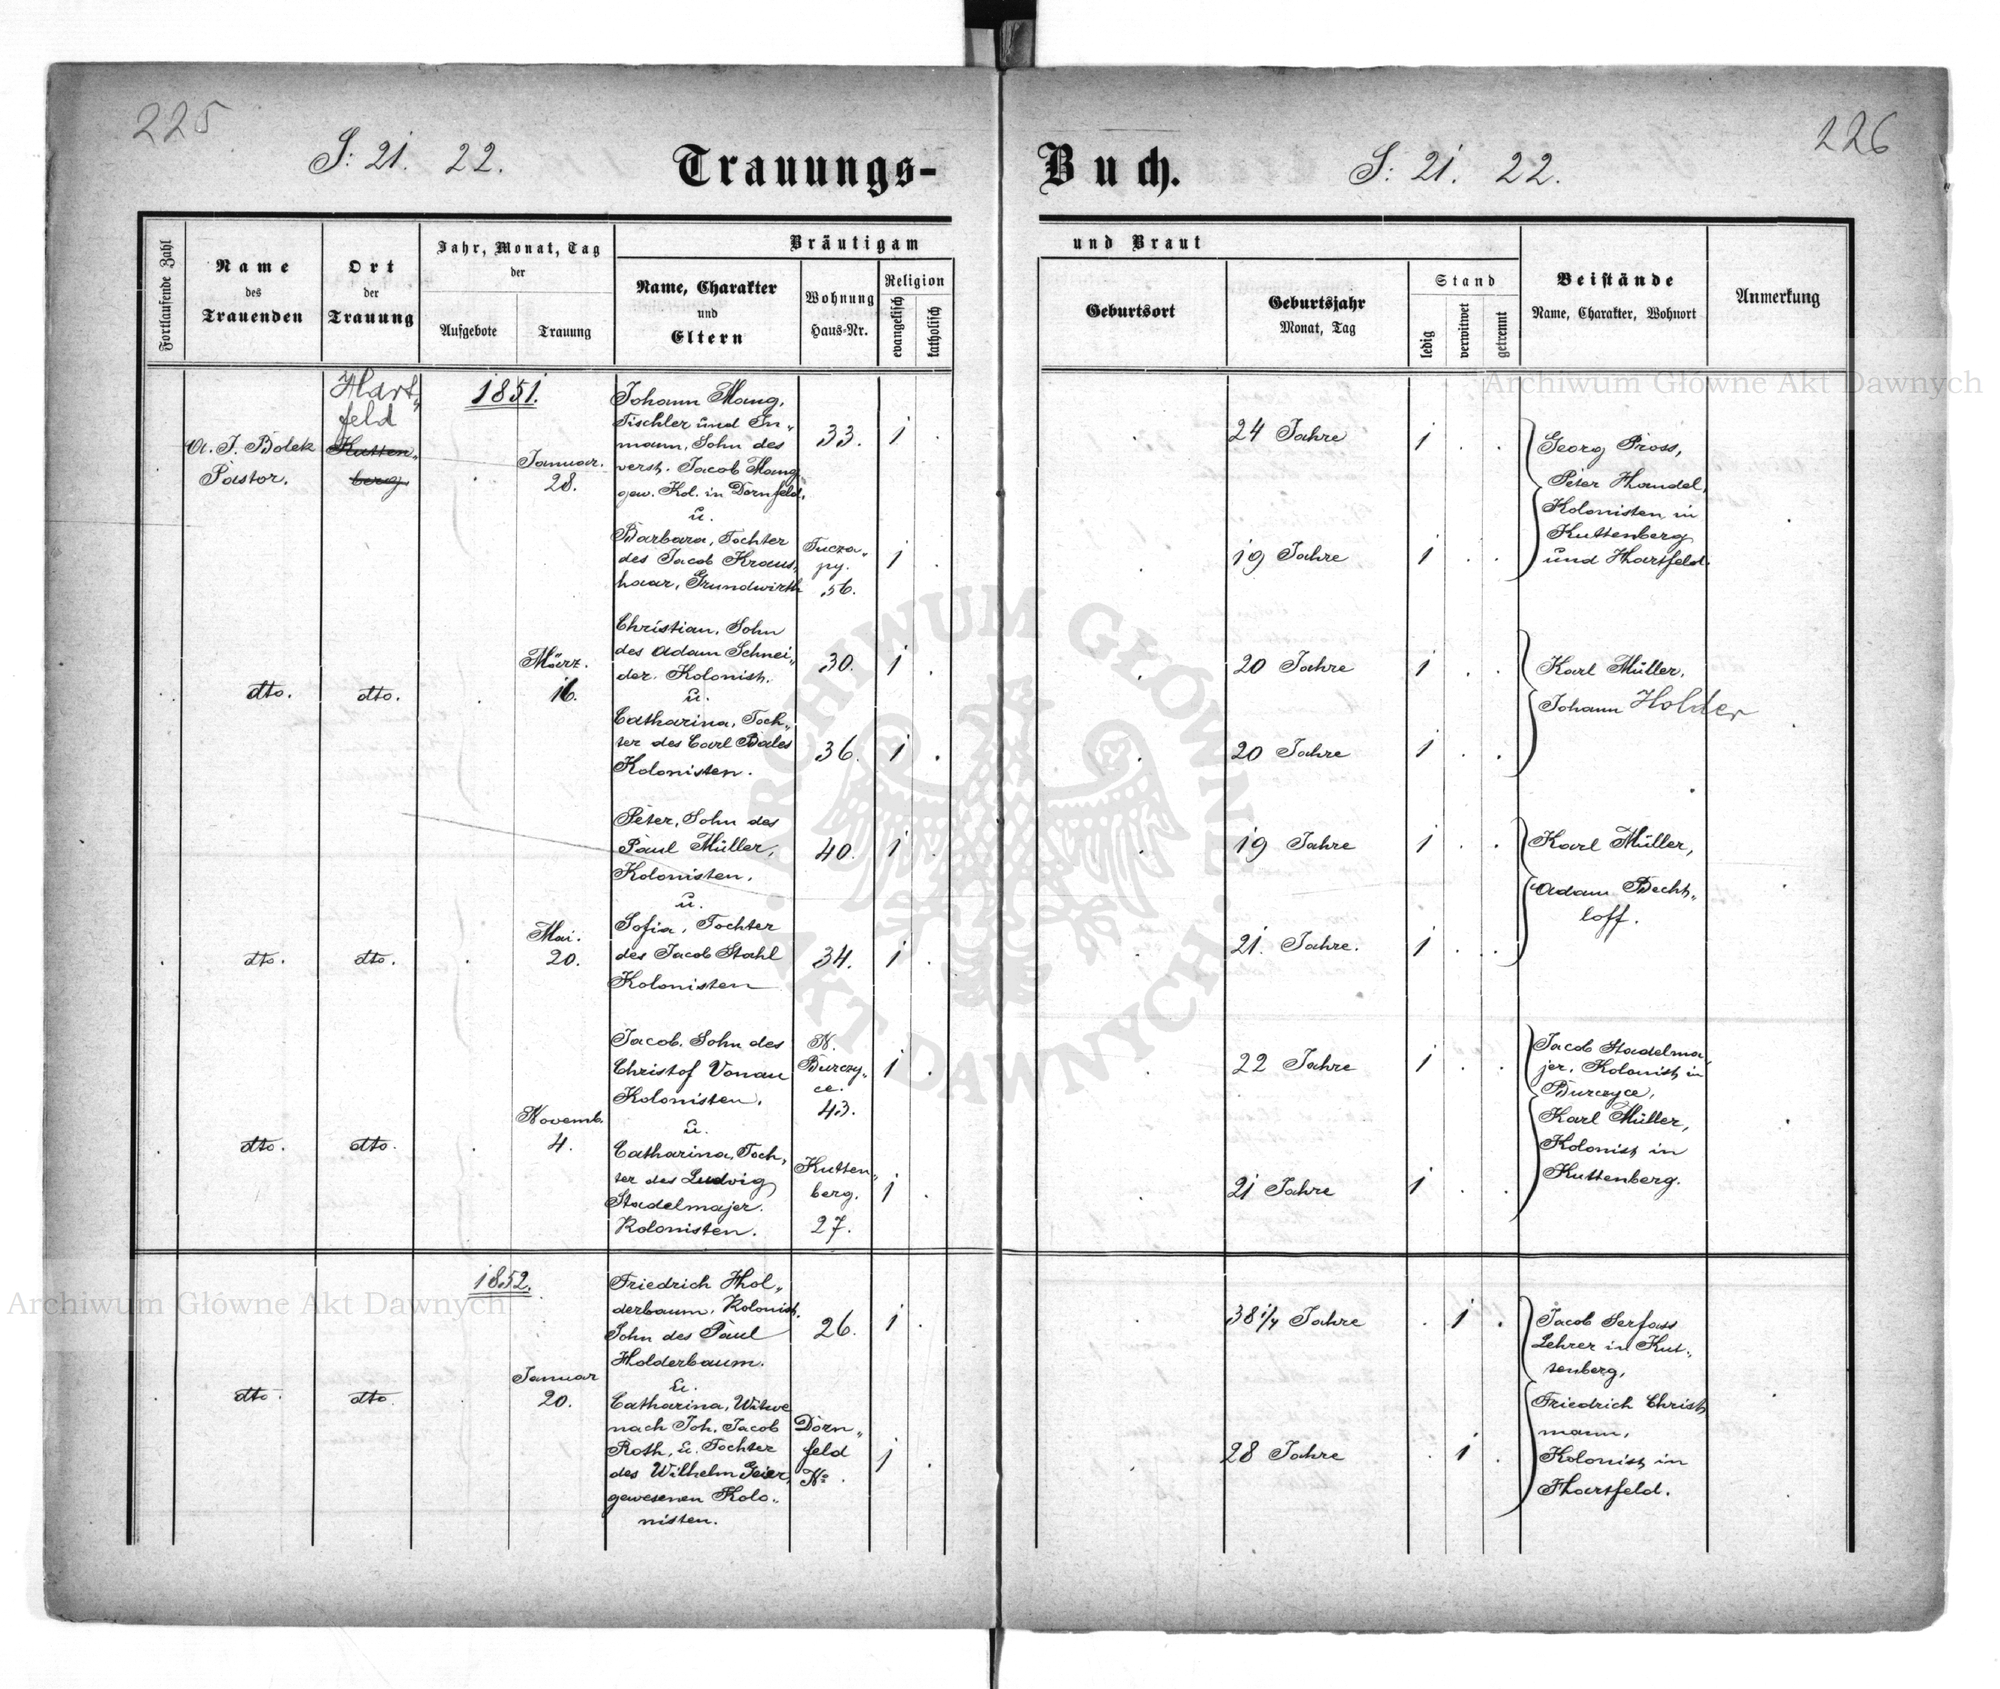 225
226
S: 21. 22.
Trauungs-
Buch.
S: 21. 22.
Fortlaufende Zahl
Name
des
Trauenden
Ort
der
Trauung
Jahr, Monat, Tag
der
Aufgebote
Trauung
Bräutigam
Name, Charakter
und
Eltern
Wohnung
Haus-Nr.
Religion
evangelisch
katholisch
und Braut
Geburtsort
Geburtsjahr
Monat, Tag
Stand
ledig
verwitwet
getrennt
Beistände
Name, Charakter, Wohnort
Anmerkung
A. J. Bolek
Pastor.
Hart„
feld
Kutten„
berg
1851.
Januar.
28.
Johann Mang,
Tischler und In„
mann, Sohn des
verst. Jacob Mang
gew. Kol. in Dornfeld.
u.
Barbara, Tochter
des Jacob Kraus„
haar, Grundwirth
33.
1
Tucza„
py.
56.
1
24 Jahre
1
19 Jahre
1
Georg Pross,
Peter Handel,
Kolonisten in
Kuttenberg
und Hartfeld.
dto.
dto.
März.
16.
Christian, Sohn
des Adam Schnei„
der. Kolonist.
u.
Catharina, Toch„
ter des Carl Bales
Kolonisten.
30.
1
36.
1
20 Jahre
1
20 Jahre
1
Karl Müller,
Johann Holder
dto.
dto.
Mai.
20.
Peter, Sohn des
Paul Müller,
Kolonisten,
u.
Sofia, Tochter
des Jacob Stahl
Kolonisten
40.
1
34.
1
19 Jahre
1
21. Jahre.
1
Karl Müller,
Adam Becht„
loff.
dto.
dto.
Novemb.
4.
Jacob. Sohn des
Christof Vonau
Kolonisten,
u.
Catharina, Toch„
ter des Ludvig
Stadelmajer.
Kolonisten.
N.
Burczy„
ce.
43.
1
Kutten„
berg.
27.
1
22 Jahre
1
21 Jahre
1
Jacob Stadelma„
jer, Kolonist in
Burczyce,
Karl Müller,
Kolonist in
Kuttenberg.
1852.
dto.
dto
Januar
20.
Friedrich Hol„
derbaum, Kolonist,
Sohn des Paul
Holderbaum.
u.
Catharina, Witwe
nach Joh. Jacob
Roth, u. Tochter
des Wilhelm Geier,
gewesenen Kolo„
nisten.
26.
1
Dorn„
feld
No.
1
38 1/4 Jahre
1
28 Jahre
1
Jacob Serfass
Lehrer in Kut„
tenberg,
Friedrich Christ
mann,
Kolonist in
Hartfeld.
Archiwum Główne Akt Dawnych
Archiwum Główne Akt Dawnych
ARCHIWUM GŁÓWNE
AKT DAWNYCH